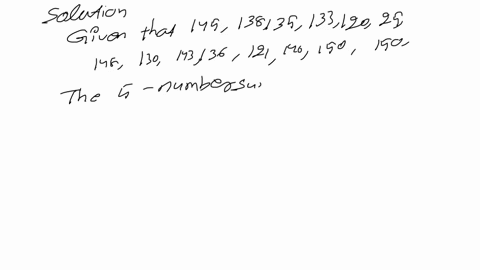 Solution
Given that 149, 138, 139, 133, 120, 29,
148, 130, 143, 136, 121, 140, 190, 190,
The 5-numbersu